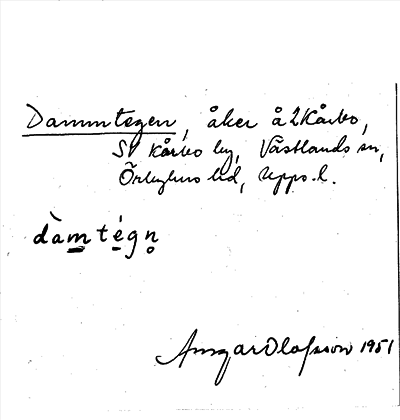 Dammtegen, åker å 2 Kårbo,
SV Kårbo by, Västlands sn,
Örbyhus hd, Upps. l.
dàm̲té̲gn̥
Ansgar Olofsson 1951